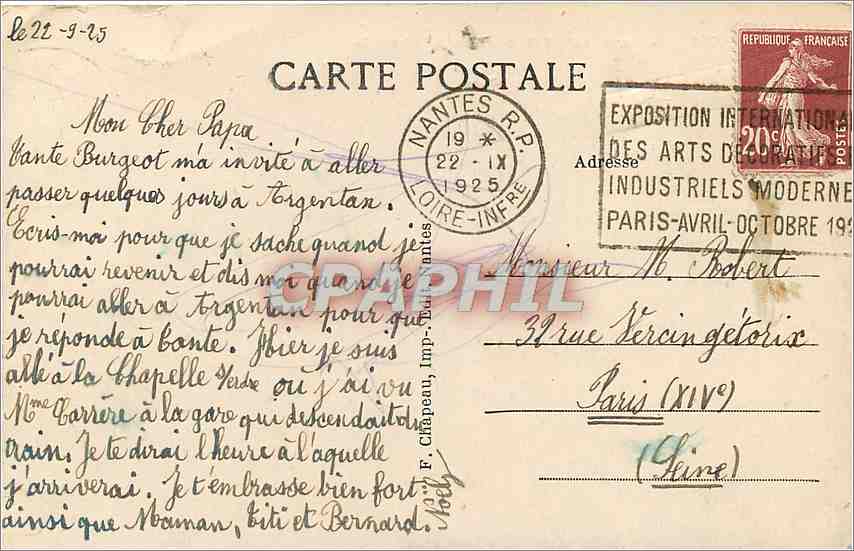 le 22-9-25
CARTE POSTALE
Mon Cher Papa
Tante Burgeot m'a invité à aller
passer quelques jours à Argentan.
Ecris-moi pour que je sache quand je
pourrai revenir et dis moi quand je
pourrai aller à Argentan pour que
je réponde à Tante. Hier je suis
allé à la Chapelle s/erdre où j'ai vu
Mme Carrère à la gare qui descendait du
train. Je te dirai l'heure à l'aquelle
j'arriverai. Je t'embrasse bien fort
ainsi que Maman, Titi et Bernard.
Noël
F. Chapeau, Imp.-Edit. Nantes
NANTES R.P.
19 *
22 - IX
1925
LOIRE-INFRE
REPUBLIQUE FRANÇAISE
20c
POSTES
EXPOSITION INTERNATIONA
DES ARTS DECORATIFS
INDUSTRIELS MODERNE
PARIS-AVRIL-OCTOBRE 192
Adresse
Monsieur M. Robert
32 rue Vercingétorix
Paris (XIVe)
(Seine)
CPAPHIL